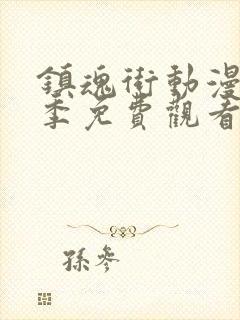 鎮魂街動漫
季免費觀看
孫參